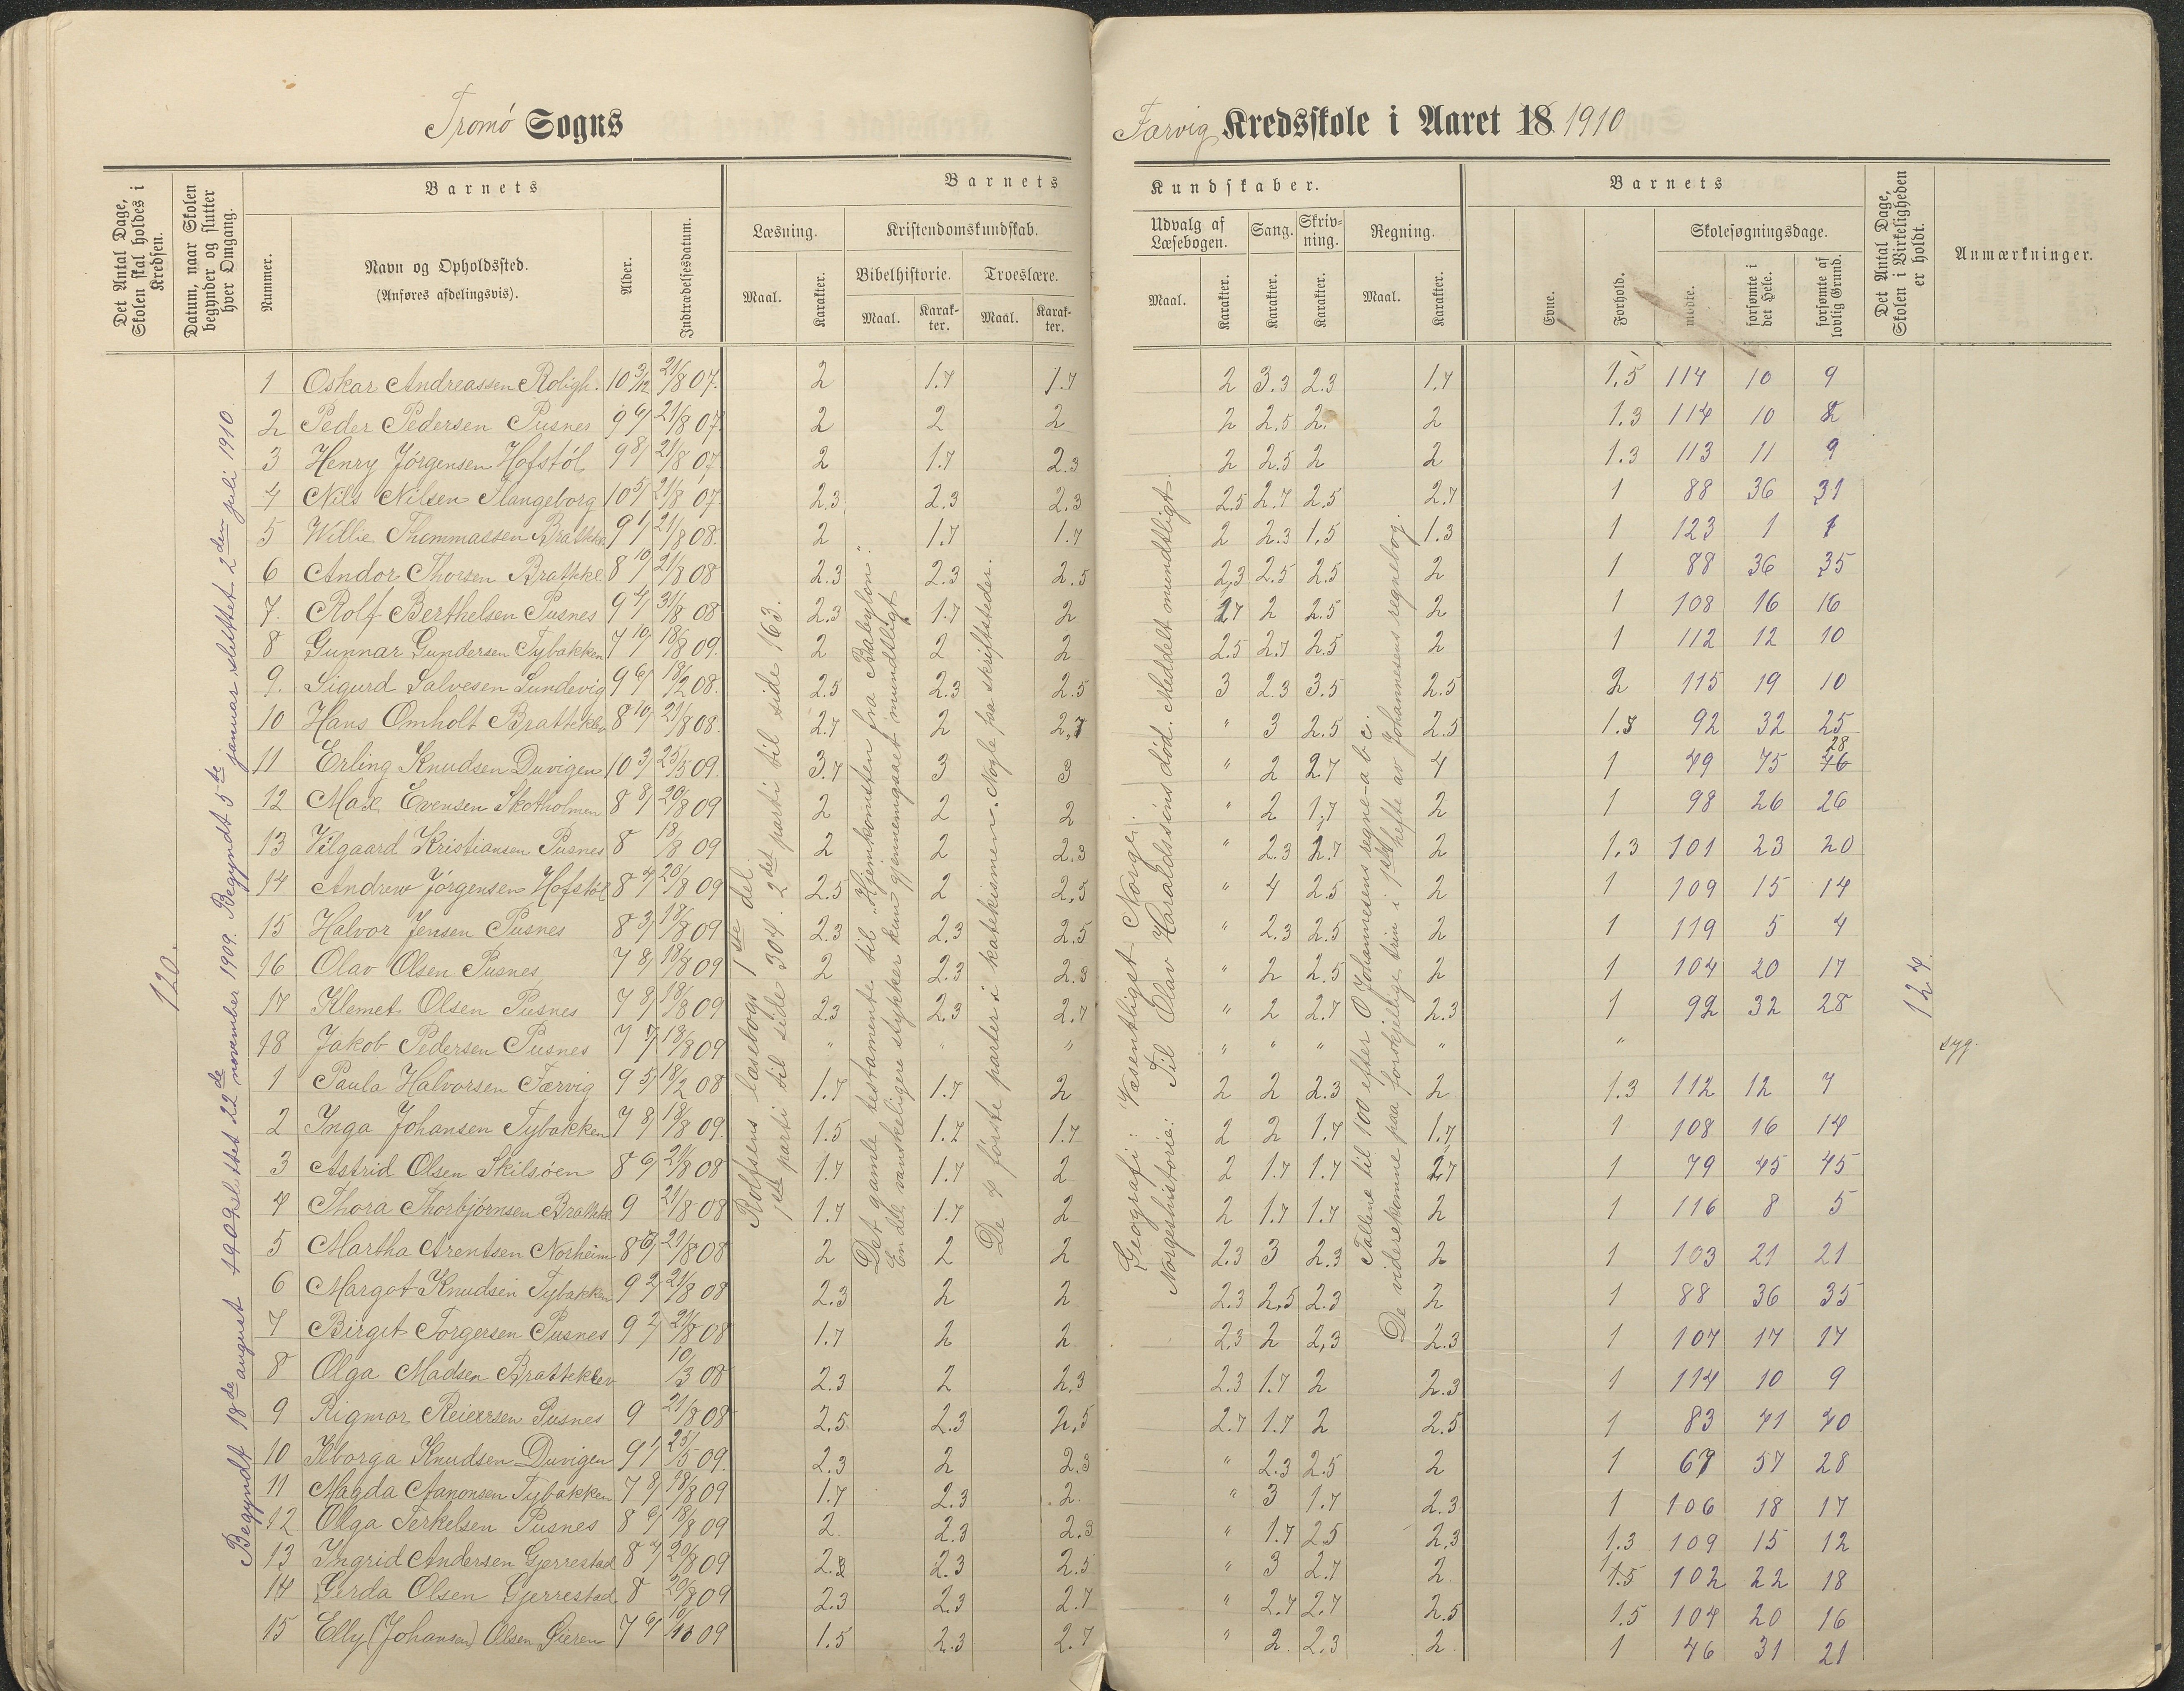 Tromö Sogns
Færvig Kredsskole i Aaret 18 1910
Det Antal Dage, Skolen skal holdes i Kredsen.
Datum, naar Skolen begynder og slutter hver Omgang.
Barnets
Nummer.
Navn og Opholdssted.
(Anføres afdelingsvis).
Alder.
Indtrædelsesdatum.
Barnets
Læsning.
Maal.
Karakter.
Kristendomskundskab.
Bibelhistorie.
Maal.
Karakter.
Troeslære.
Maal.
Karakter.
Kundskaber.
Udvalg af Læsebogen.
Maal.
Karakter.
Sang.
Karakter.
Skrivning.
Karakter.
Regning.
Maal.
Karakter.
Barnets
Evne.
Forhold.
Skolesøgningsdage.
mødte.
forsømte i det Hele.
forsømte af lovlig Grund.
Det Antal Dage, Skolen i Virkeligheden er holdt.
Anmærkninger.
120.
Begyndt 18de august 1909 sluttet 22de november 1909. Begyndt 5te januar sluttet 2den juli 1910.
Rolfsens læsebogs 1ste del
1ste parti til side 304. 2det parti til side 163.
Det gamle testamente til "Hjemkomsten fra Babylon".
En del vanskeligere stykker kun gjennemgaaet mundtligt.
De 4 förste parter i katekismen. Nogle faa skriftsteder.
Geografi: Væsentligst Norge.
Norgeshistorie: Til Olav Haraldssöns död. Meddelt mundtligt.
Tallene til 100 efter O Johannesens regne-abc.
De viderekomne paa forskjellige trin i 1ste hefte av Johannesens regnebog.
1 Oskar Andreassen Roligh. 10 3/12 21/8 07. 2 1.7 1.7 2 3.3 2.3 1.7 1.5 114 10 9
2 Peder Pedersen Pusnes 9 6/ 21/8 07 2 2 2 2 2.5 2. 2 1.3 114 10 8
3 Henry Jörgensen Hofstöl 9 8/ 21/8 07 2 1.7 2.3 2 2.5 2 2 1.3 113 11 9
4 Nils Nilsen Flangeborg 10 5/ 21/8 07 2.3 2.3 2.3 2.5 2.7 2.5 2.7 1 88 36 31
5 Willie Thommassen Brattekl 9 1/ 21/8 08. 2 1.7 1.7 2 2.3 1.5 1.3 1 123 1 1
6 Andor Thorsen Brattekl 8 10/ 21/8 08 2.3 2.3 2.5 2,3 2.5 2.5 2 1 88 36 35
7. Rolf Berthelsen Pusnes 9 4/ 31/8 08 2.3 1.7 2 2.7 2 2.5 2 1 108 16 16
8 Gunnar Gundersen Tybakken 7 10/ 18/8 09. 2 2 2 2.5 2.7 2.5 2 1 112 12 10
9. Sigurd Salvesen Sundevig 9 6/ 18/2 08. 2.5 2.3 2.5 3 2.3 3.5 2.5 2 115 19 10
10 Hans Omholt Brattekl 8 10/ 21/8 08. 2.7 2 2,7 " 3 2.5 2.5 1.3 92 32 25
11 Erling Knudsen Duvigen 10 3/ 25/5 09. 3.7 3 3 " 2 2.7 4 1 49 75 46 28
12 Max Evensen Skotholmen 8 8/ 20/8 09 2 2 2 " 2 1,7 2 1 98 26 26
13 Vilgaard Kristiansen Pusnes 8 18/8 09 2 2 2,3 " 2.3 2.7 2 1.3 101 23 20
14 Andrew Jörgensen Hofstöl 8 4/ 20/8 09 2.5 2 2,5 " 4 2.5 2 1 109 15 14
15 Halvor Jensen Pusnes 8 3/ 18/8 09 2.3 2.3 2.5 " 2.3 2.5 2 1 119 5 4
16 Olav Olsen Pusnes 7 8/ 18/8 09 2 2.3 2.3 " 2 2.5 2 1 104 20 17
17 Klemet Olsen Pusnes 7 8/ 18/8 09 2.3 2.3 2.7 " 2 2.7 2.3 1 92 32 28
124.
18 Jakob Pedersen Pusnes 7 7/ 18/8 09 " " " " " " " " syg.
1 Paula Halvorsen Færvig 9 5/ 18/2 08 1.7 1.7 2 2 2 2.3 2 1.3 112 12 7
2 Inga Johansen Tybakken 7 8/ 18/8 09. 1.5 1.7 1.7 2 2 1.7 1.7 1 108 16 14
3 Astrid Olsen Skilsöen 8 6/ 21/8 08 1.7 1.7 2 2 1.7 1.7 2.7 1 79 45 45
4 Thora Thorbjörnsen Brattekl 9 21/8 08 1.7 1.7 2 2 1.7 1.7 2 1 116 8 5
5 Martha Arentsen Norheim 8 6/ 21/8 08 2 2 2 2.3 3 2.3 2 1 103 21 21
6 Margot Knudsen Tybakken 9 2/ 21/8 08 2.3 2 2 2.3 2,5 2.3 2 1 88 36 35
7 Birgit Torgersen Pusnes 9 2/ 21/8 08 1.7 2 2 2.3 2 2,3 2.3 1 107 17 17
8 Olga Madsen Bratteklev 10/3 08 2.3 2 2,3 2.3 1.7 2 2.3 1 114 10 9
9 Rigmor Reiersen Pusnes 9 21/8 08 2.5 2.3 2,5 2.7 1.7 2 2.5 1 83 41 40
10 Ilborga Knudsen Duvigen 9 1/ 25/5 09. 2.3 2 2.3 " 2.3 2.5 2 1 67 57 28
11 Magda Aanonsen Tybakken 7 8/ 18/8 09 1.7 2.3 2. " 3 1.7 2.3 1 106 18 17
12 Olga Terkelsen Pusnes 8 6/ 18/8 09 2. 2.3 2.3 " 1.7 2.5 2,3 1.3 109 15 12
13 Ingrid Andersen Gjerrestad 8 4/ 20/8 09 2.3 2.3 2.5 " 3 2.7 2 1.5 102 22 18
14 Gerda Olsen Gjerrestad 8 20/8 09 2.3 2.3 2.7 " 2.7 2.7 2.5 1.5 104 20 16
15 Elly (Johansen) Olsen Gieren 7 6/ 18/10 09 1.5 2.3 2.7 " 2. 2.3 2. 1 46 31 21